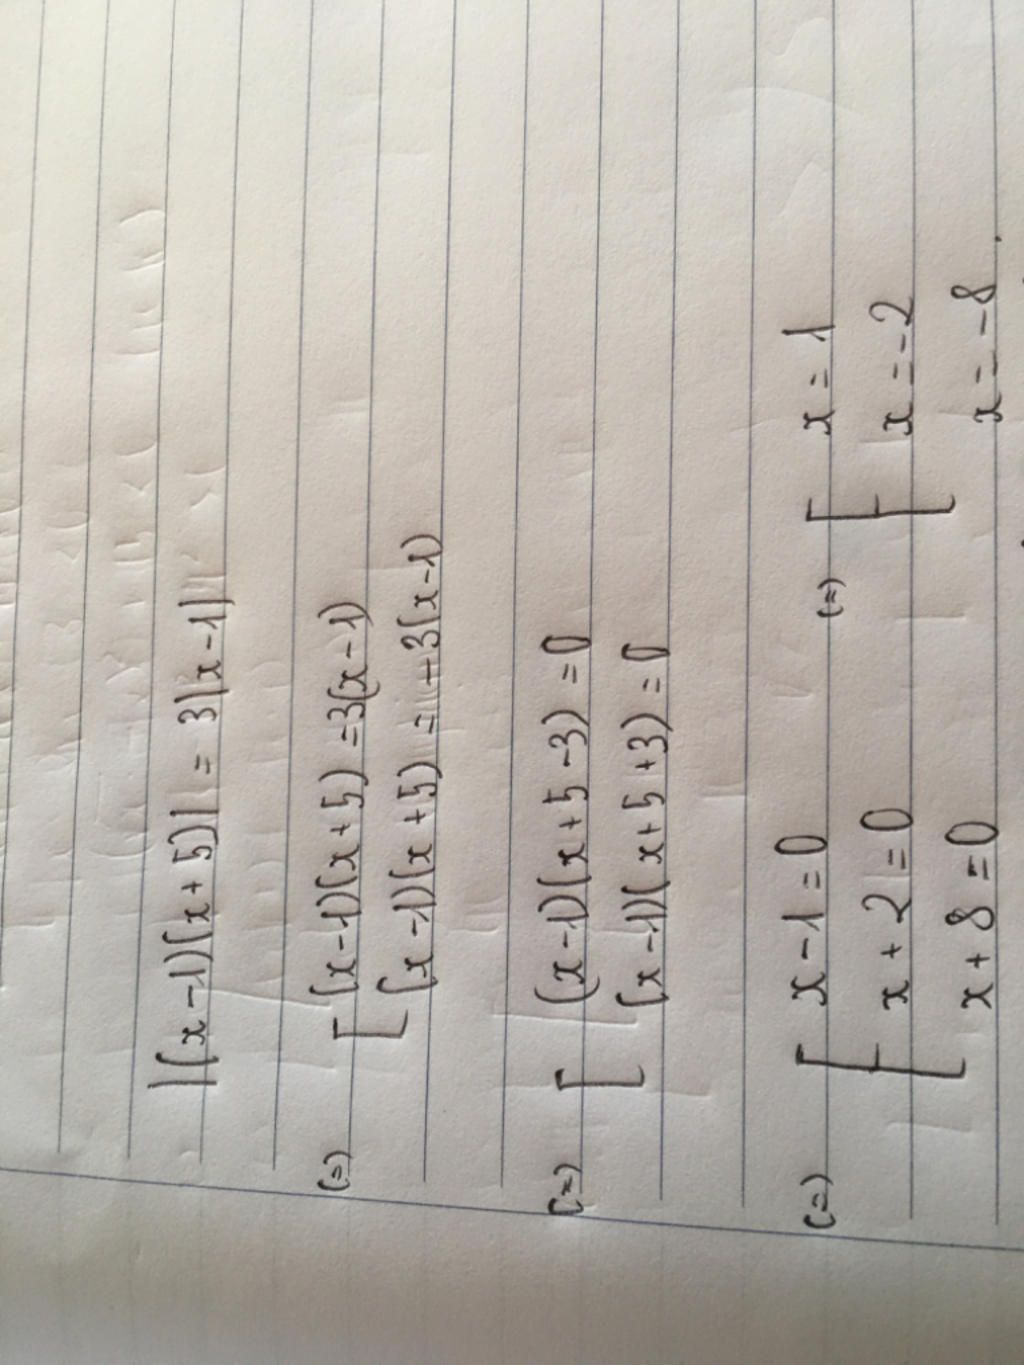 |(x-1)(x+5)| = 3|x-1|
(=) [ (x-1)(x+5) = 3(x-1)
(x-1)(x+5) = -3(x-1)
(=) [ (x-1)(x+5-3) = 0
(x-1)(x+5+3) = 0
(=) [ x-1 = 0 (=) [ x = 1
x+2 = 0 x = -2
x+8 = 0 x = -8.